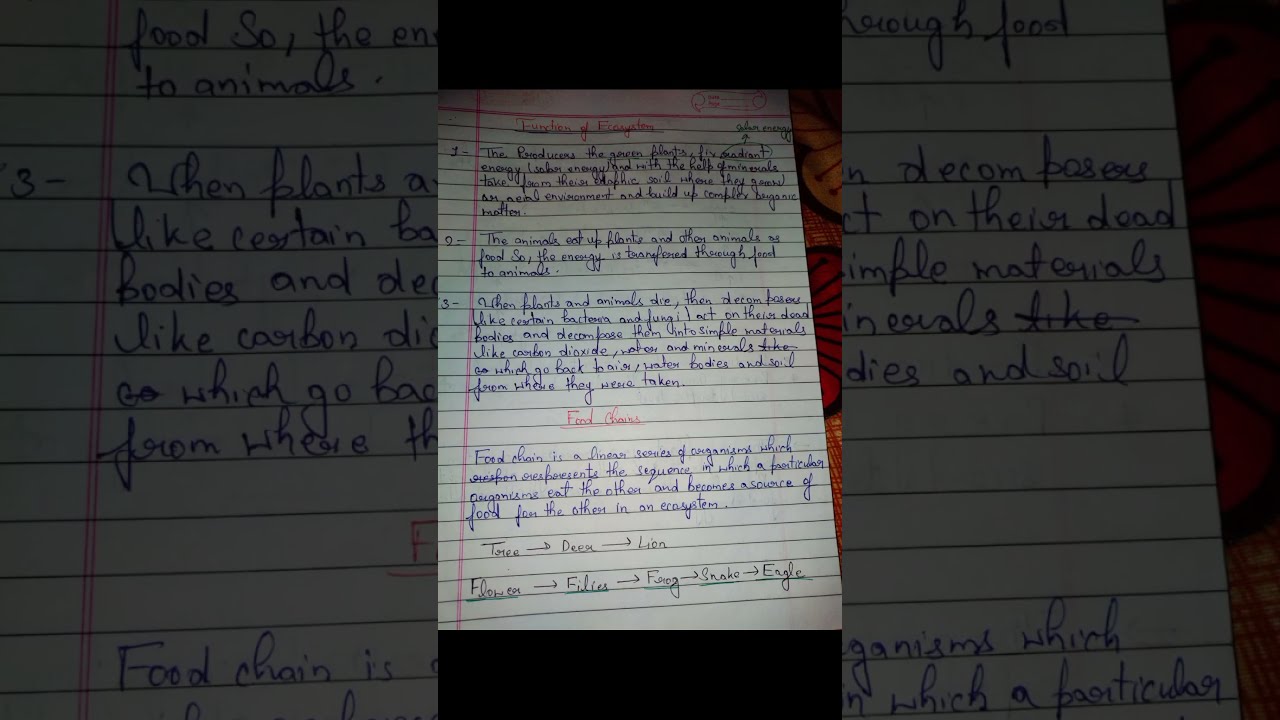 Function of Ecosystem
solar energy
1- The Producers the green plants, fix radiant
energy (solar energy) and with the help of minerals
take from their edaphic soil where they grow)
or aerial environment and build up complex organic
matter.
2- The animals eat up plants and other animals as
food So, the energy is transfered through food
to animals.
3- When plants and animals die, then decomposers
(like certain bacteria and fungi) act on their dead
bodies and decompose them into simple materials
like carbon dioxide, water and minerals like
which go back to air, water bodies and soil
from where they were taken.
Food Chains
Food chain is a linear series of organisms which
respresents the sequence in which a particular
organisms eat the other and becomes a source of
food for the other in an ecosystem.
Tree → Deer → Lion
Flower → Filies → Frog → Snake → Eagle